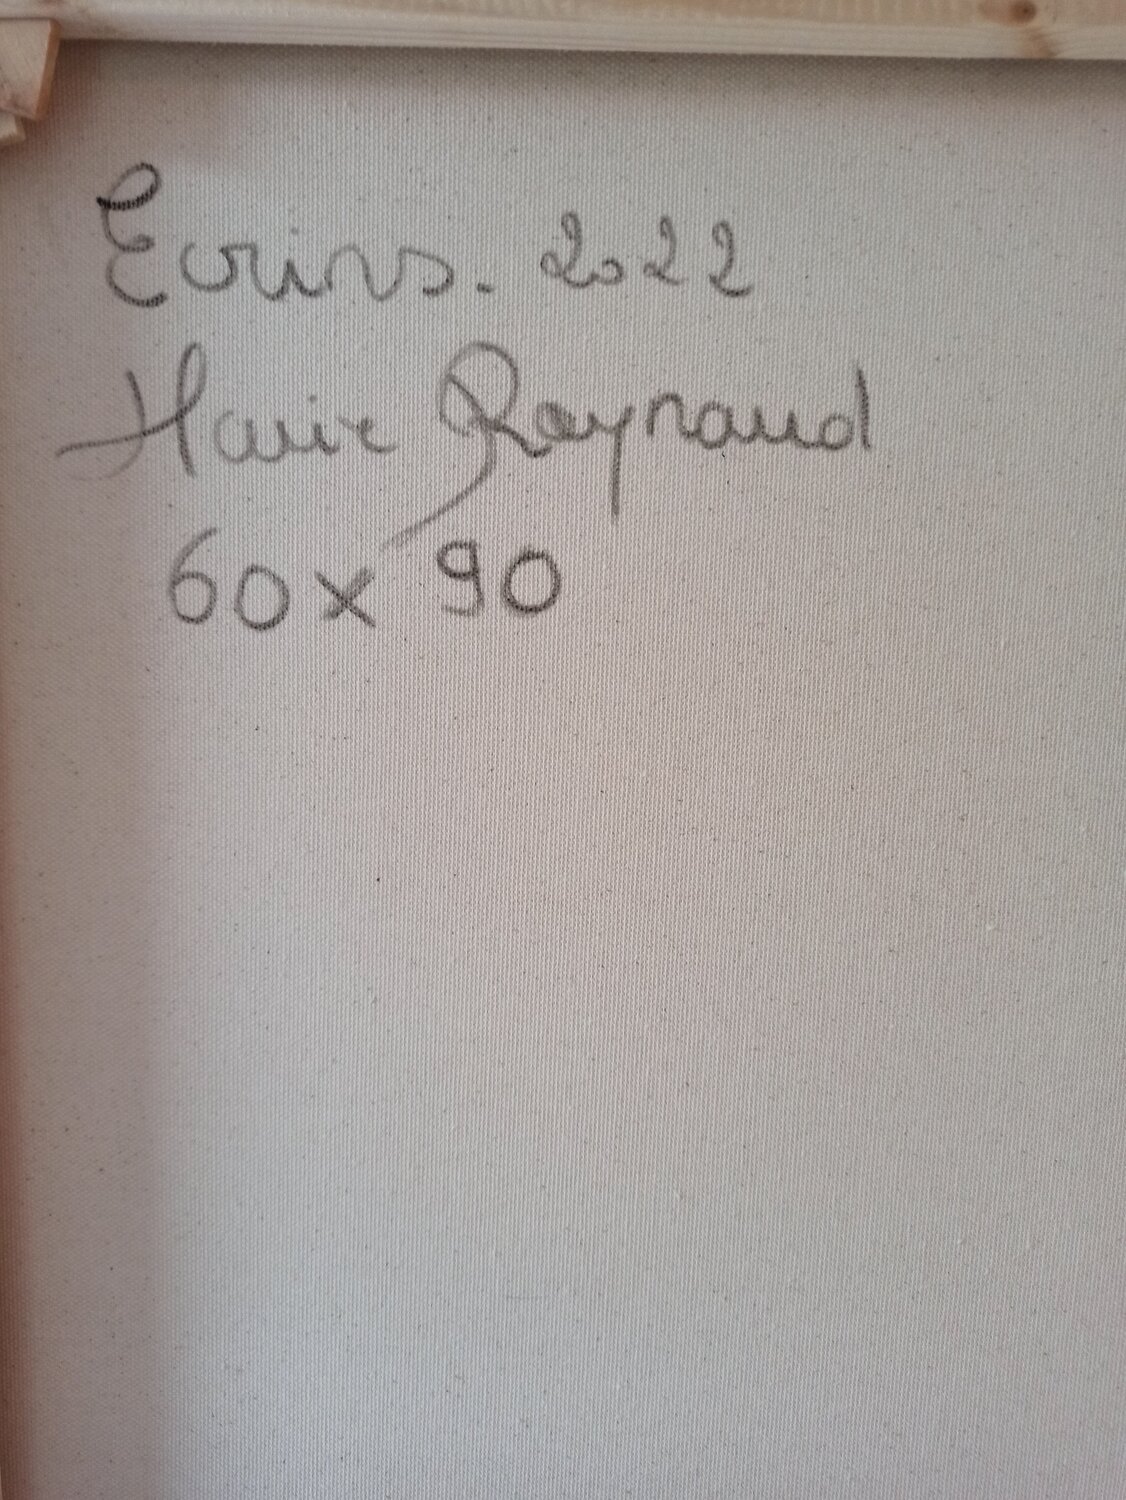 Ecrins. 2022
Marie Raynaud
60x 90